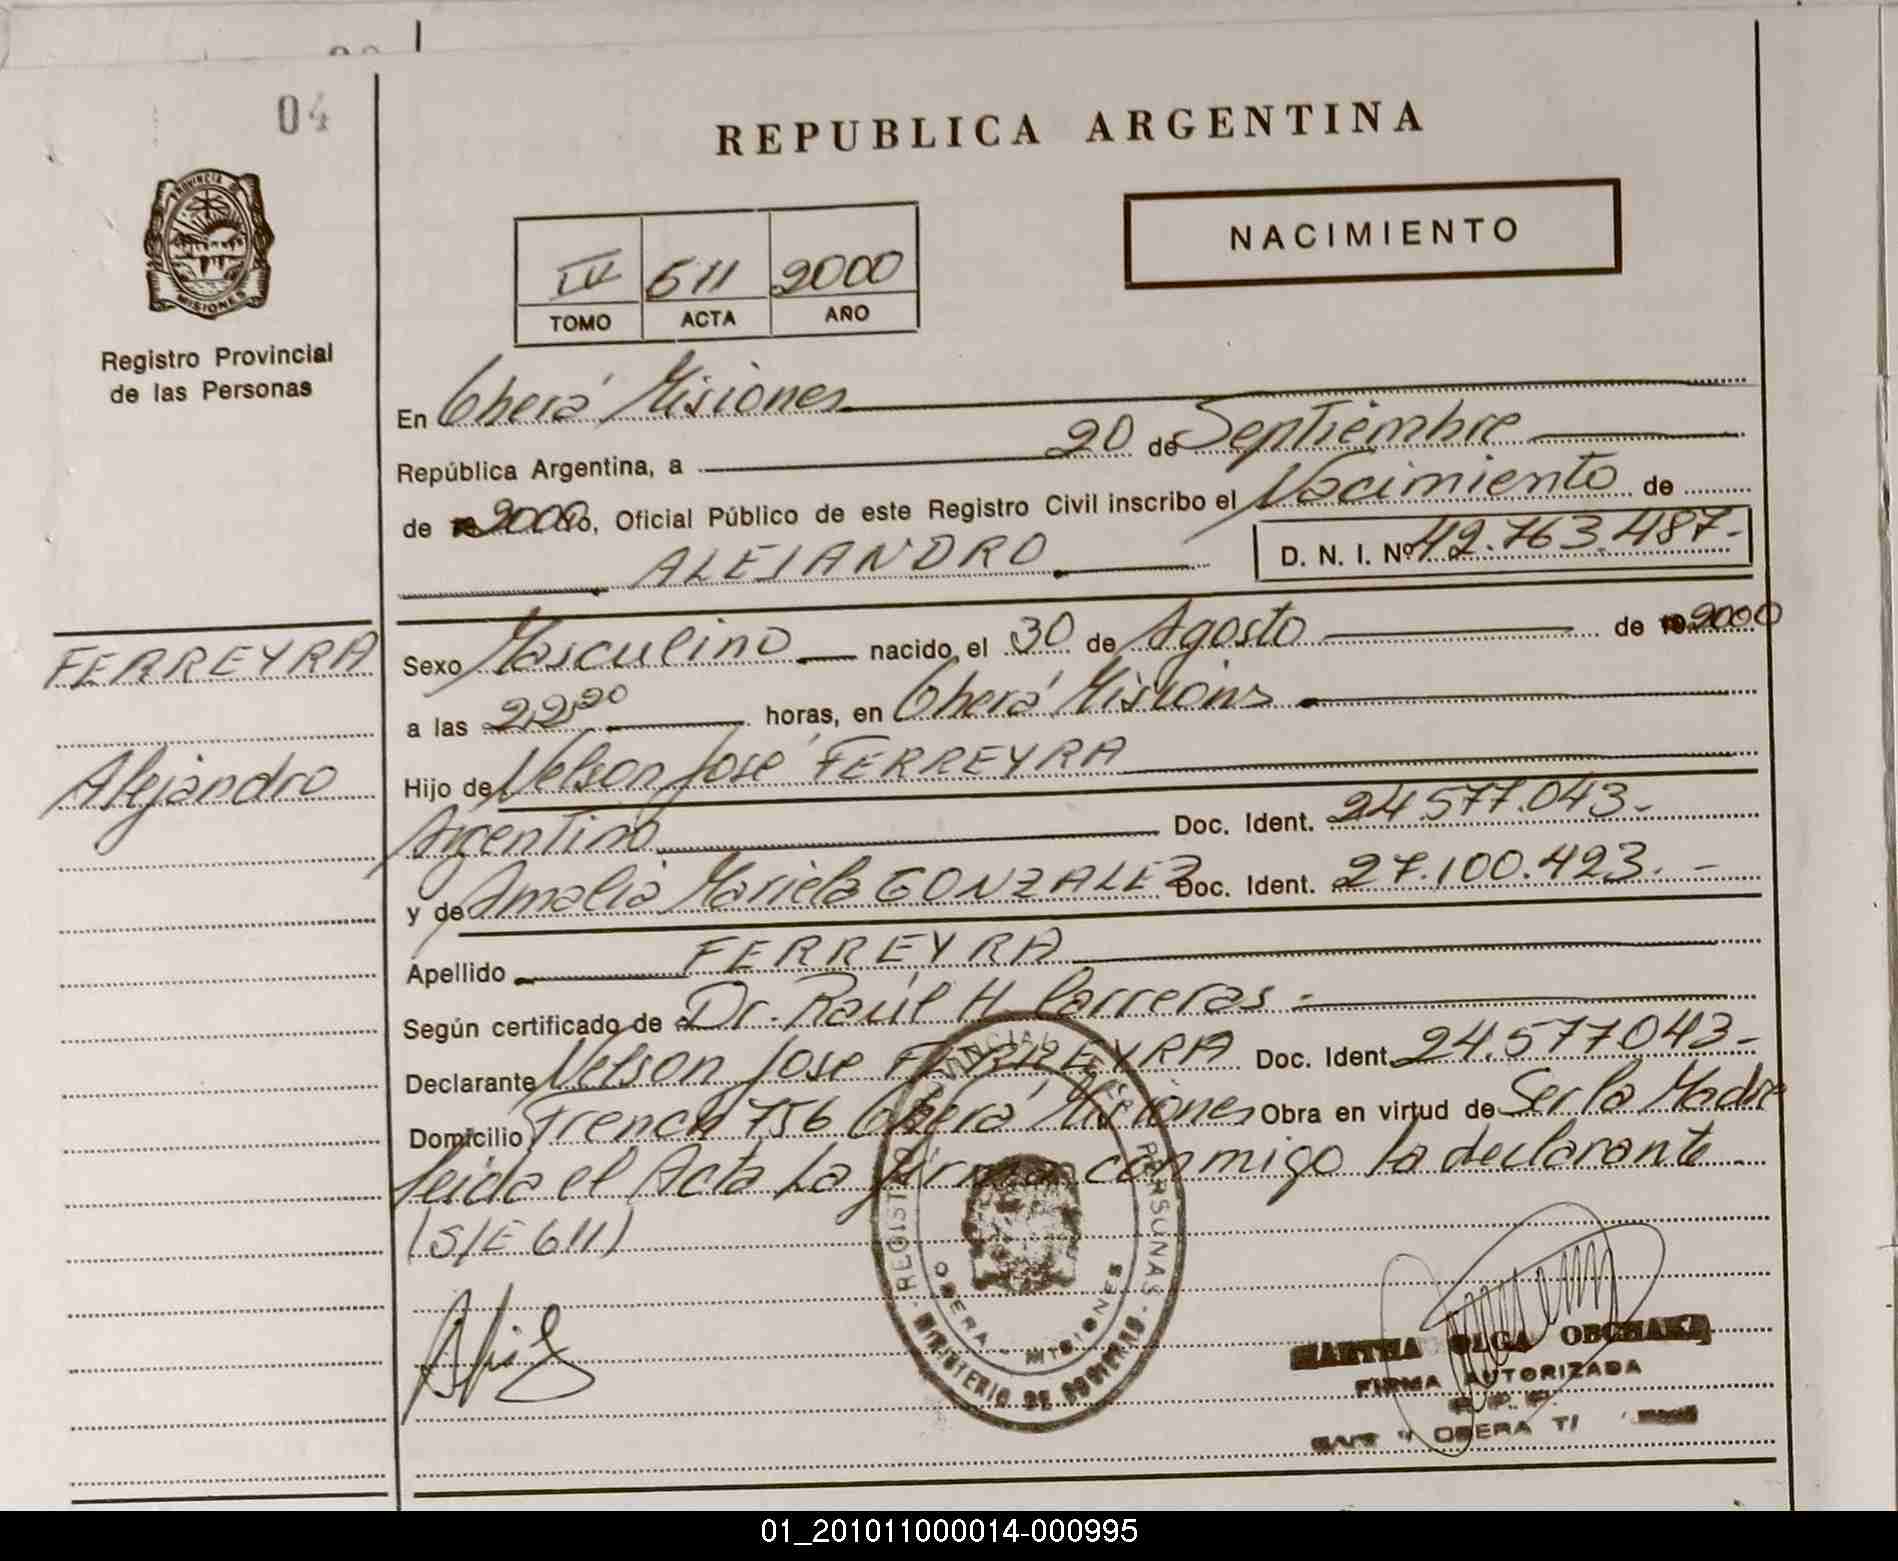 04
REPUBLICA ARGENTINA
NACIMIENTO
PROVINCIA DE
MISIONES
IV 611 2000
TOMO ACTA AÑO
Registro Provincial
de las Personas
En Oberá Misiones
República Argentina, a 20 de Septiembre
de 2000 Yo, Oficial Público de este Registro Civil inscribo el Nacimiento de
ALEJANDRO D. N. I. Nº 42.763.487-
FERREYRA
Alejandro
Sexo Masculino nacido el 30 de Agosto de 2000
a las 22,20 horas, en Oberá Misions
Hijo de Nelson José FERREYRA
Argentino Doc. Ident. 24.577.043-
y de Amalia Mariela GONZALEZ Doc. Ident. 27.100.423.-
Apellido FERREYRA
Según certificado de Dr. Raúl H Carreras -
Declarante Nelson Jose FERREYRA Doc. Ident. 24.577043-
Domicilio French 756 Oberá Misiones Obra en virtud de Ser la Madre
leida el Acta la firman conmigo la declarante
(S/E 611)
REGISTRO PROVINCIAL DE LAS PERSONAS
OBERA - MISIONES
MINISTERIO DE GOBIERNO
MARTHA OLGA
FIRMA AUTORIZADA
R. P. P.
OBERA
01_201011000014-000995